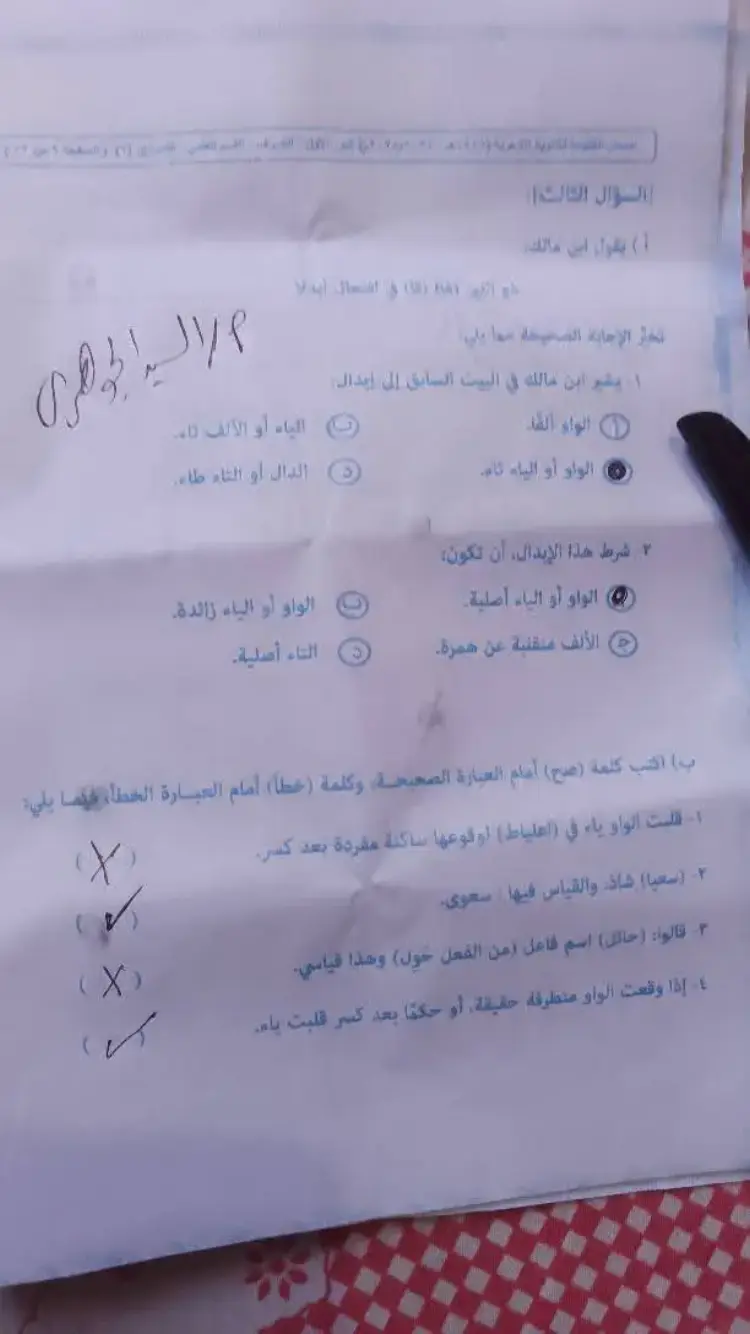 السؤال الثالث:
أ ) يقول ابن مالك:
في افتعال أبدلا
تخيَّر الإجابة الصحيحة مما يلي:
م/ السيد الجوهري
١- يشير ابن مالك في البيت السابق إلى إبدال:
أ الواو ألفًا. ب الياء أو الألف تاء.
الواو أو الياء تاء. د الدال أو التاء طاء.
٢- شرط هذا الإبدال، أن تكون:
الواو أو الياء أصلية. ب الواو أو الياء زائدة.
ج الألف منقلبة عن همزة. د التاء أصلية.
ب) اكتب كلمة (صح) أمام العبارة الصحيحة، وكلمة (خطأ) أمام العبارة الخطأ، فيما يلي:
١- قلبت الواو ياء في (اعلياط) لوقوعها ساكنة مفردة بعد كسر. ( X )
٢- (سعيا) شاذ، والقياس فيها: سعوى. ( ✓ )
٣- قالوا: (حائل) اسم فاعل (من الفعل حَوِل) وهذا قياسي. ( X )
٤- إذا وقعت الواو متطرفة حقيقة، أو حكمًا بعد كسر قلبت ياء. ( ✓ )